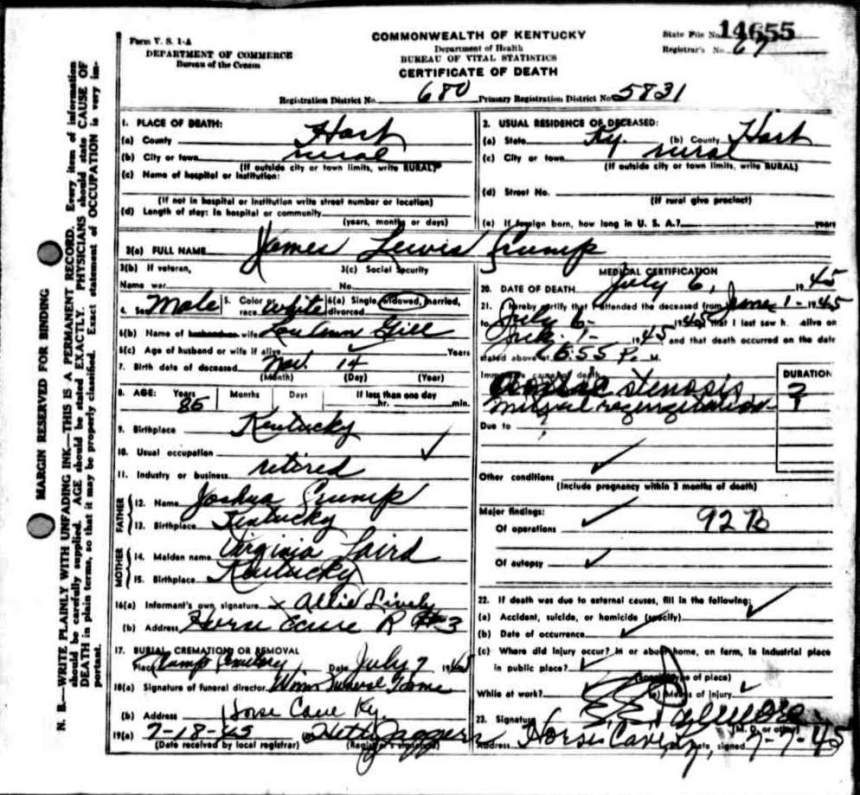 Form V. S. 1-A
DEPARTMENT OF COMMERCE
Bureau of the Census
COMMONWEALTH OF KENTUCKY
Department of Health
BUREAU OF VITAL STATISTICS
CERTIFICATE OF DEATH
State File No. 14655
Registrar's No. 67
Registration District No. 680 Primary Registration District No. 5831
MARGIN RESERVED FOR BINDING
N. B.—WRITE PLAINLY WITH UNFADING INK—THIS IS A PERMANENT RECORD. Every item of information
should be carefully supplied. AGE should be stated EXACTLY. PHYSICIANS should state CAUSE OF
DEATH in plain terms, so that it may be properly classified. Exact statement of OCCUPATION is very im-
portant.
1. PLACE OF DEATH:
(a) County Hart
(b) City or town rural
(If outside city or town limits, write RURAL)
(c) Name of hospital or institution:
(If not in hospital or institution write street number or location)
(d) Length of stay: In hospital or community
(years, months or days)
2. USUAL RESIDENCE OF DECEASED:
(a) State Ky. (b) County Hart
(c) City or town rural
(If outside city or town limits, write RURAL)
(d) Street No.
(If rural give precinct)
(e) If foreign born, how long in U. S. A.? years
3(a) FULL NAME James Lewis Crump
3(b) If veteran, 3(c) Social Security
Name war No.
4. Sex Male 5. Color or race White 6(a) Single, widowed, married, divorced
6(b) Name of husband or wife Lou Ann Gill
6(c) Age of husband or wife if alive Years
7. Birth date of deceased Nov. 14
(Month) (Day) (Year)
8. AGE: Years Months Days If less than one day
85 hr. min.
9. Birthplace Kentucky
10. Usual occupation
11. Industry or business retired
FATHER
12. Name Joshua Crump
13. Birthplace Kentucky
MOTHER
14. Maiden name Virginia Laird
15. Birthplace Kentucky
16(a) Informant's own signature x Allie Lively
(b) Address Horse Cave R #3
17. BURIAL, CREMATION OR REMOVAL
Place Crump Cemetery Date July 7 1945
18(a) Signature of funeral director Winn Funeral Home
(b) Address Horse Cave Ky.
19(a) 7-18-45 (b) Jaggers
(Date received by local registrar) (Registrar's signature)
MEDICAL CERTIFICATION
20. DATE OF DEATH July 6, 1945
21. I hereby certify that I attended the deceased from June 1- 1945
to July 6- 1945 that I last saw h alive on
July 1- 1945 and that death occurred on the date
stated above at 6:55 P. M.
Immediate cause of death
stenosis
mitral regurgitation
DURATION
2
1
Due to
Other conditions
(Include pregnancy within 3 months of death)
Major findings:
Of operations 92 B
Of autopsy
22. If death was due to external causes, fill in the following:
(a) Accident, suicide, or homicide (specify)
(b) Date of occurrence
(c) Where did injury occur? In or about home, on farm, in industrial place
in public place?
(Specify type of place)
While at work? (e) Means of injury
23. Signature E. E.
(M. D. or other)
Address Horse Cave Ky, Date signed 7-7-45